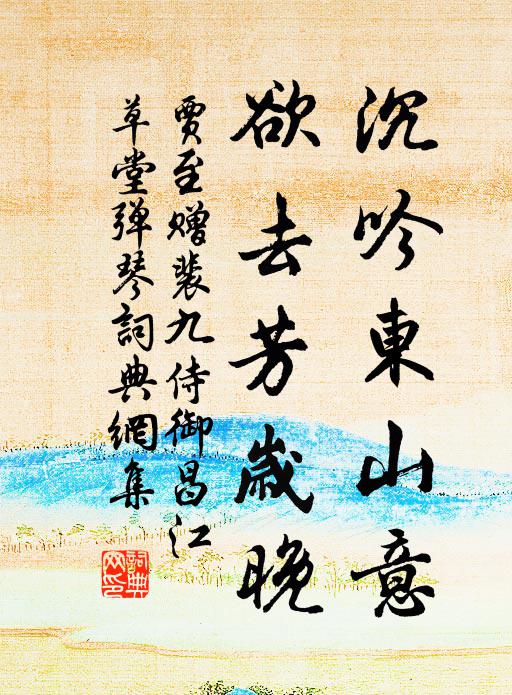 沉吟東山意
欲去芳歲晚
賈至贈裴九侍御昌江
草堂弹琴詞典網集
詞典
网印